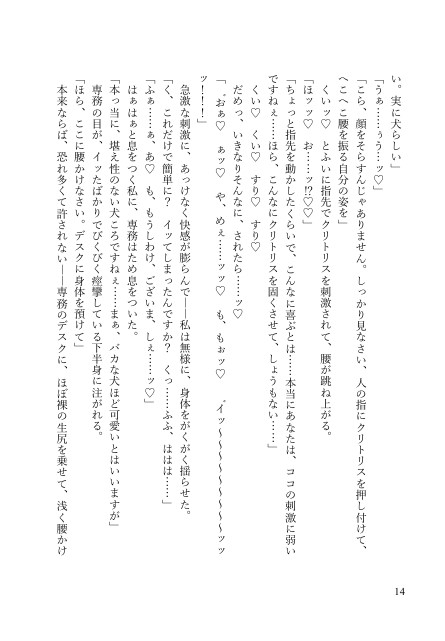 い。実に犬らしい」
「うぁ……ぅう…ッ♡」
「こら、顔をそらすんじゃありません。しっかり見なさい、人の指にクリトリスを押し付けて、
へこへこ腰を振る自分の姿を」
くいッ♡　とふいに指先でクリトリスを刺激されて、腰が跳ね上がる。
「ほッッ♡　お……ッ⁉♡♡」
「ちょっと指先を動かしたくらいで、こんなに喜ぶとは……本当にあなたは、ココの刺激に弱い
ですねぇ……ほら、こんなにクリトリスを固くさせて、しょうもない……」
くい♡　くい♡　すり♡　すり♡
だめっ、いきなりそんなに、されたら……ッ♡
「゛おぁ♡　ぁッ♡　や、めぇ……ッッ♡　も、もぉッ♡　゛イッ～～～～～～～～ッッ
ッ！！！」
急激な刺激に、あっけなく快感が膨らんで――私は無様に、身体をがくがく揺らせた。
「く、これだけで簡単に？　イッてしまったんですか？　くっ……ふふ、ははは……」
「ふぁ……ぁ、あ♡　も、もうしわけ、ございま、しぇ……ッ♡」
はぁはぁと息をつく私に、専務はため息をついた。
「本っ当に、堪え性のない犬ころですねぇ……まぁ、バカな犬ほど可愛いとはいいますが」
専務の目が、イッたばかりでびくびく痙攣している下半身に注がれる。
「ほら、ここに腰かけなさい。デスクに身体を預けて」
本来ならば、恐れ多くて許されない――専務のデスクに、ほぼ裸の生尻を乗せて、浅く腰かけ
14